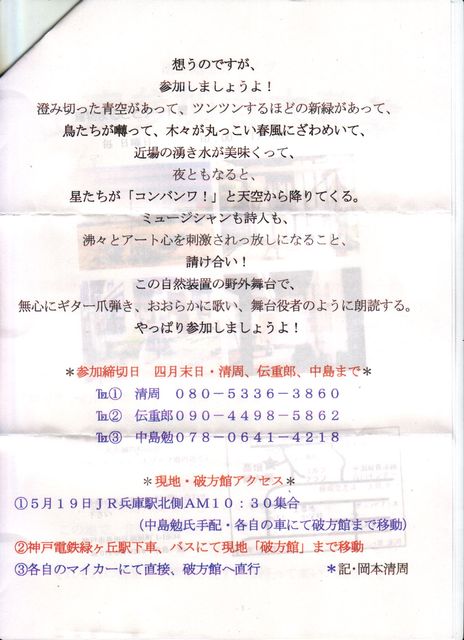 想うのですが、
参加しましょうよ！
澄み切った青空があって、ツンツンするほどの新緑があって、
鳥たちが囀って、木々が丸っこい春風にざわめいて、
近場の湧き水が美味くって、
夜ともなると、
星たちが「コンバンワ！」と天空から降りてくる。
ミュージシャンも詩人も、
沸々とアート心を刺激されっ放しになること、
請け合い！
この自然装置の野外舞台で、
無心にギター爪弾き、おおらかに歌い、舞台役者のように朗読する。
やっぱり参加しましょうよ！
＊参加締切日　四月末日・清周、伝重郎、中島まで＊
℡①　清周　０８０－５３３６－３８６０
℡②　伝重郎０９０－４４９８－５８６２
℡③　中島勉０７８－０６４１－４２１８
＊現地・破方館アクセス＊
①５月１９日ＪＲ兵庫駅北側ＡＭ１０：３０集合
（中島勉氏手配・各自の車にて破方館まで移動）
②神戸電鉄緑ヶ丘駅下車、バスにて現地「破方館」まで移動
③各自のマイカーにて直接、破方館へ直行　　　　＊記・岡本清周